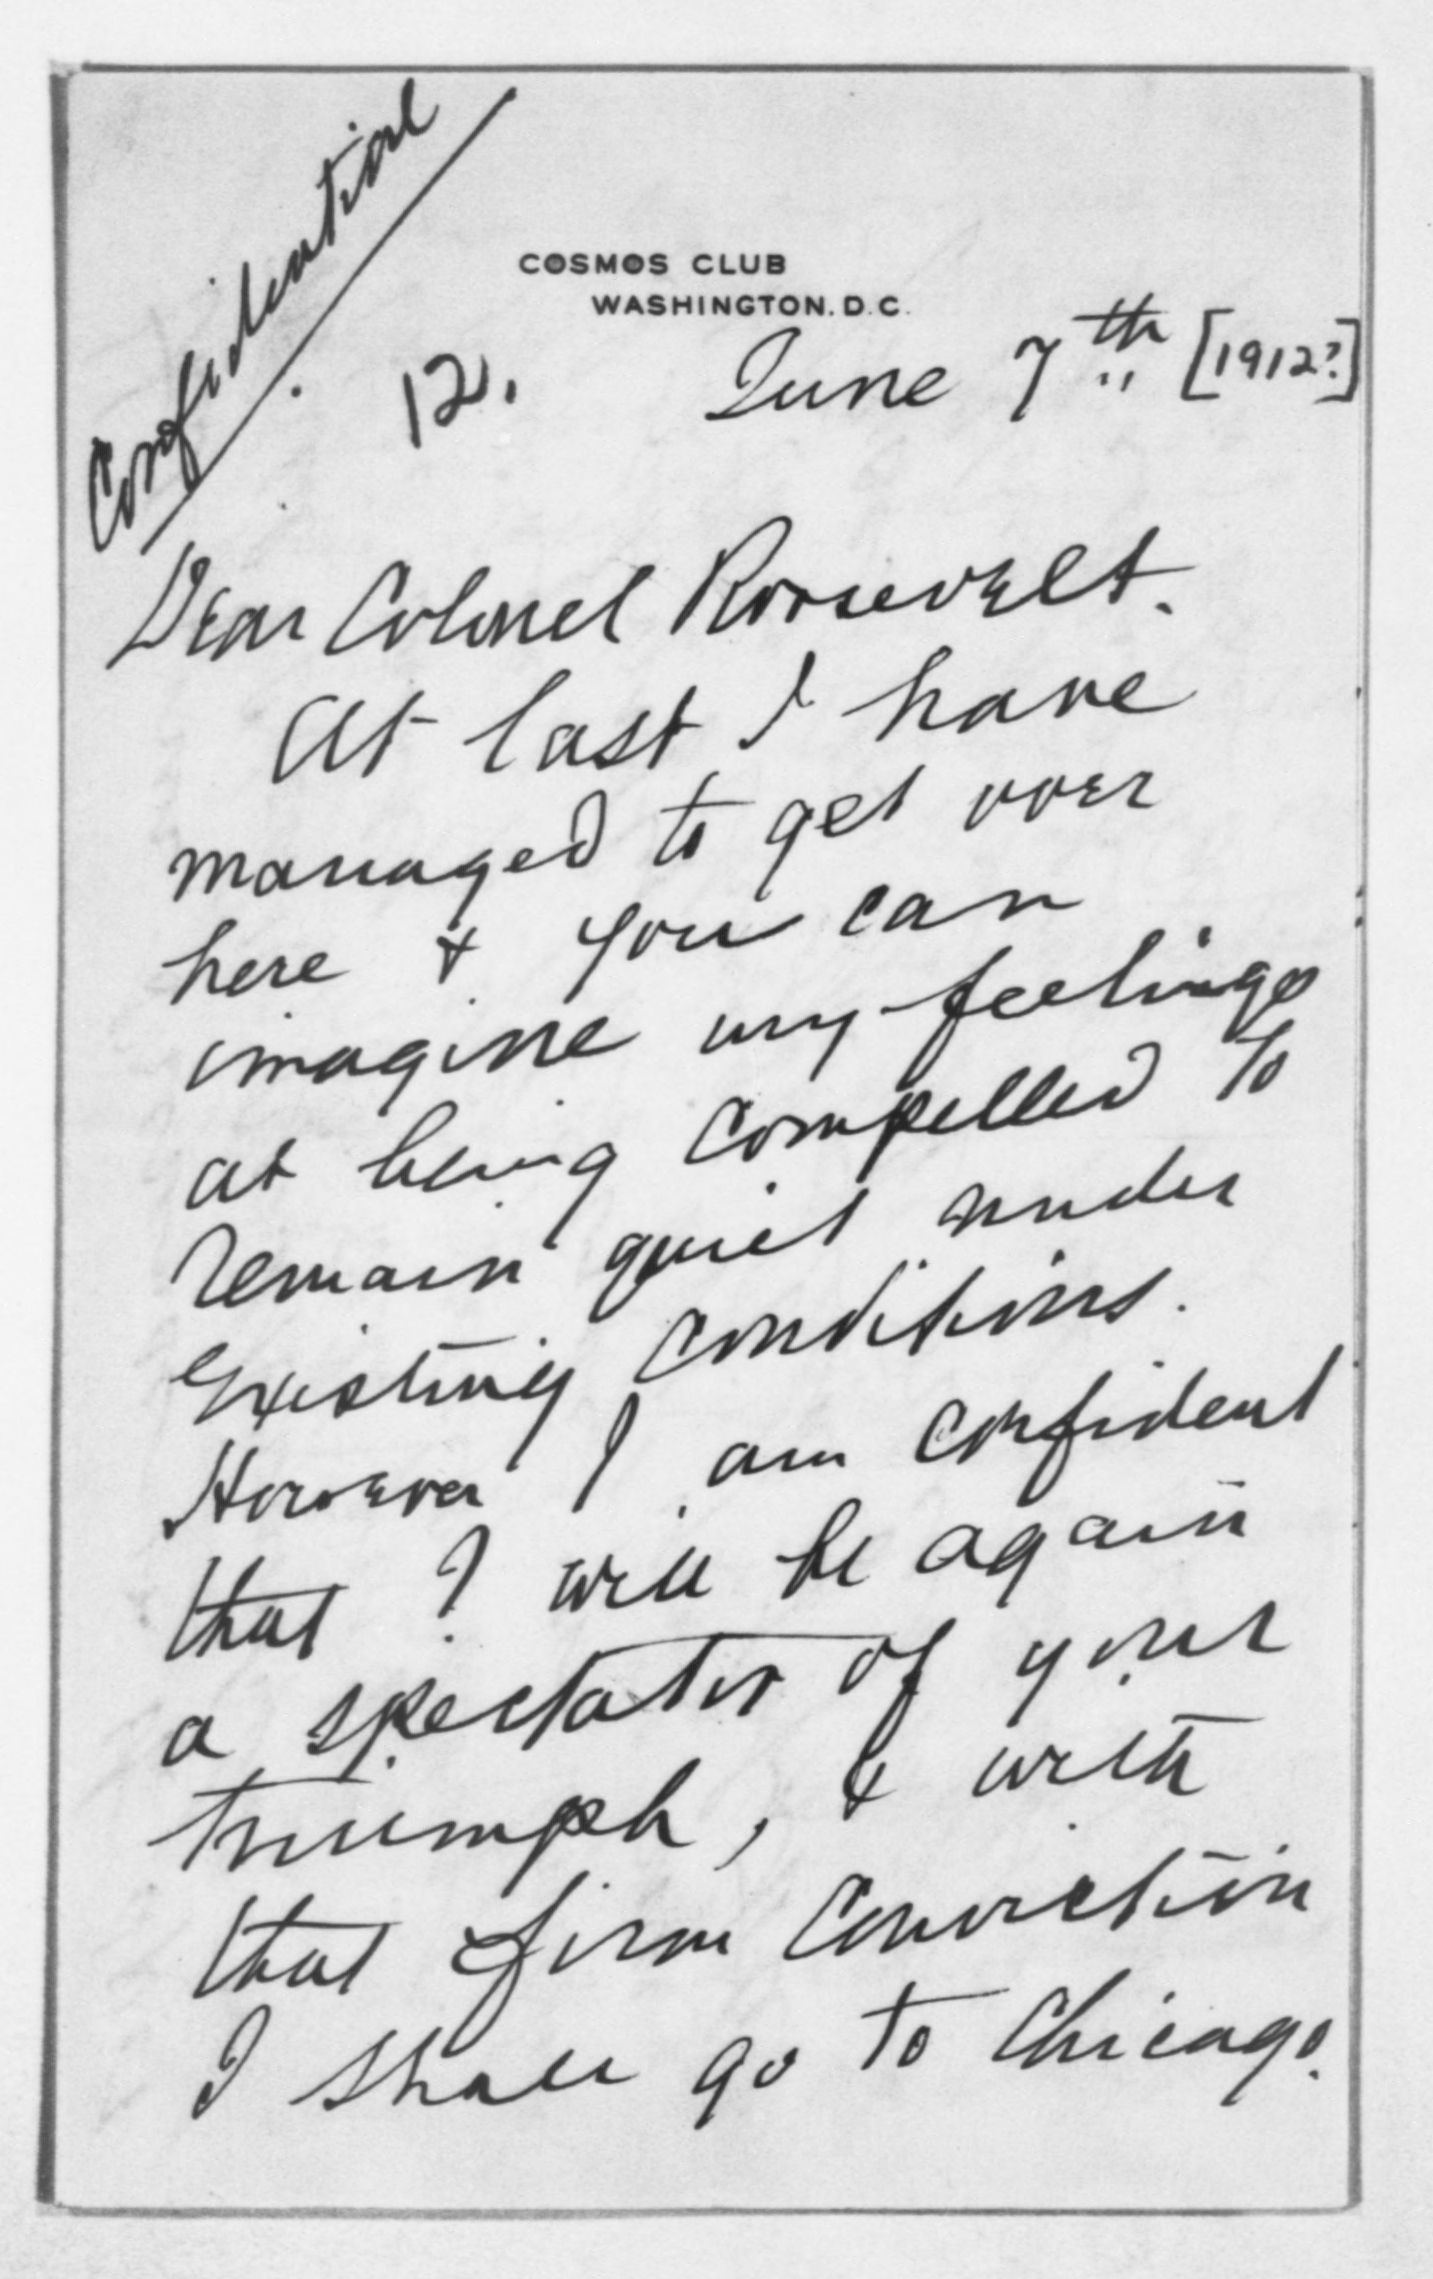 Confidential
COSMOS CLUB
WASHINGTON. D. C.
12. June 7th [1912?]
Dear Colonel Roosevelt.
At last I have
managed to get over
here & you can
imagine my feelings
at being compelled to
remain quiet under
existing conditions.
However I am confident
that I will be again
a spectator of your
triumph, & with
that firm conviction
I shall go to Chicago.